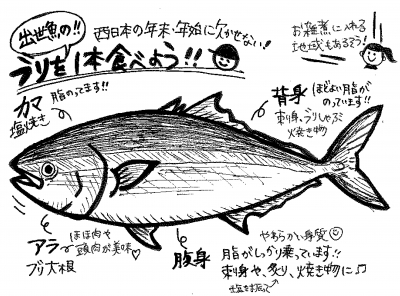 出世魚の!!
西日本の年末・年始に欠かせない!
ブリを1本食べよう!!
お雑煮に入れる
地域もあるそう!
カマ
脂のってます!!
塩焼き
背身
ほどよい脂が
のっています!!
刺身、ブリしゃぶ
焼き物
アラ
ほほ肉や
頭肉が美味♡
ブリ大根
腹身
やわらかい身質
脂がしっかり乗っています!!
刺身や、炙り、焼き物に♫
塩を振って